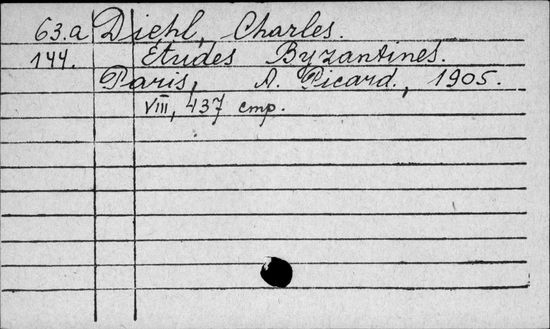 63.a Diehl, Charles.
144. Etudes Byzantines.
Paris, A. Picard., 1905.
VIII, 437 стр.